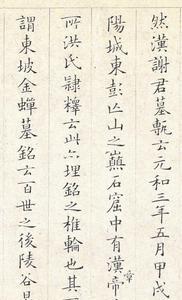 然漢謝君墓甎云元和三年五月甲戌
陽城東彭亾山之巔石窟中有漢章帝
所洪氏隸釋云此亦埋銘之椎輪也其
謂東坡金蟬墓銘云百世之後陵谷易